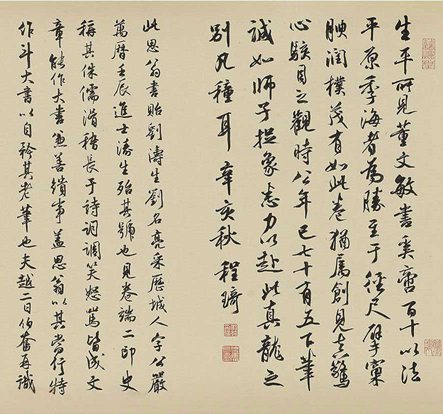 生平所見董文敏書奚啻百十以法
平原季海者為勝至于徑尺擘窠
腴潤樸茂有如此卷猶屬創見真驚
心駭目之觀時公年已七十有五下筆
誠如師子捉象悉力以赴此真龍之
別凡種耳辛亥秋程琦
此思翁書貽劉濤生劉名亮采歷城人字公嚴
萬曆壬辰進士濤生殆其號也見卷端二印史
稱其侏儒滑稽長于詩詞調笑怒罵皆成文
章能作大書兼善繪事蓋思翁以其當行特
作斗大書以自矜其老筆也夫越二日伯奮再識